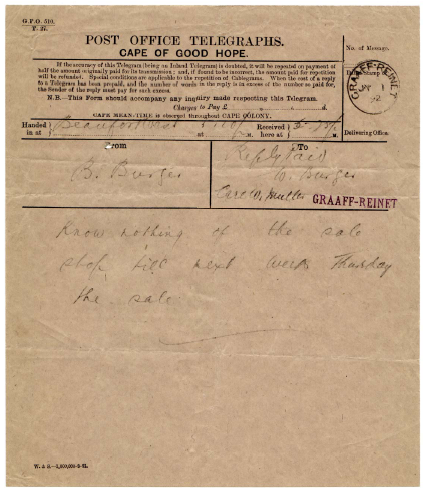 G.P.O. 510.
P. 27.
POST OFFICE TELEGRAPHS.
CAPE OF GOOD HOPE.
If the accuracy of this Telegram (being an Inland Telegram) is doubted, it will be repeated on payment of
half the amount originally paid for its transmission; and, if found to be incorrect, the amount paid for repetition
will be refunded. Special conditions are applicable to the repetition of Cablegrams. When the cost of a reply
to a Telegram has been prepaid, and the number of words in the reply is in excess of the number so paid for,
the Sender of the reply must pay for such excess.
N.B.—This Form should accompany any inquiry made respecting this Telegram.
Charges to Pay £ s. d.
CAPE MEAN-TIME is observed throughout CAPE COLONY.
No. of Message.
GRAAFF-REINET
Delivering Office.
Handed in at Beaufort West
Received here at
From
B. Burger
To
Reply Paid
W. Burger
Care W. Muller GRAAFF-REINET
Know nothing of the sale
stop till next week Thursday
the sale
W. & S.